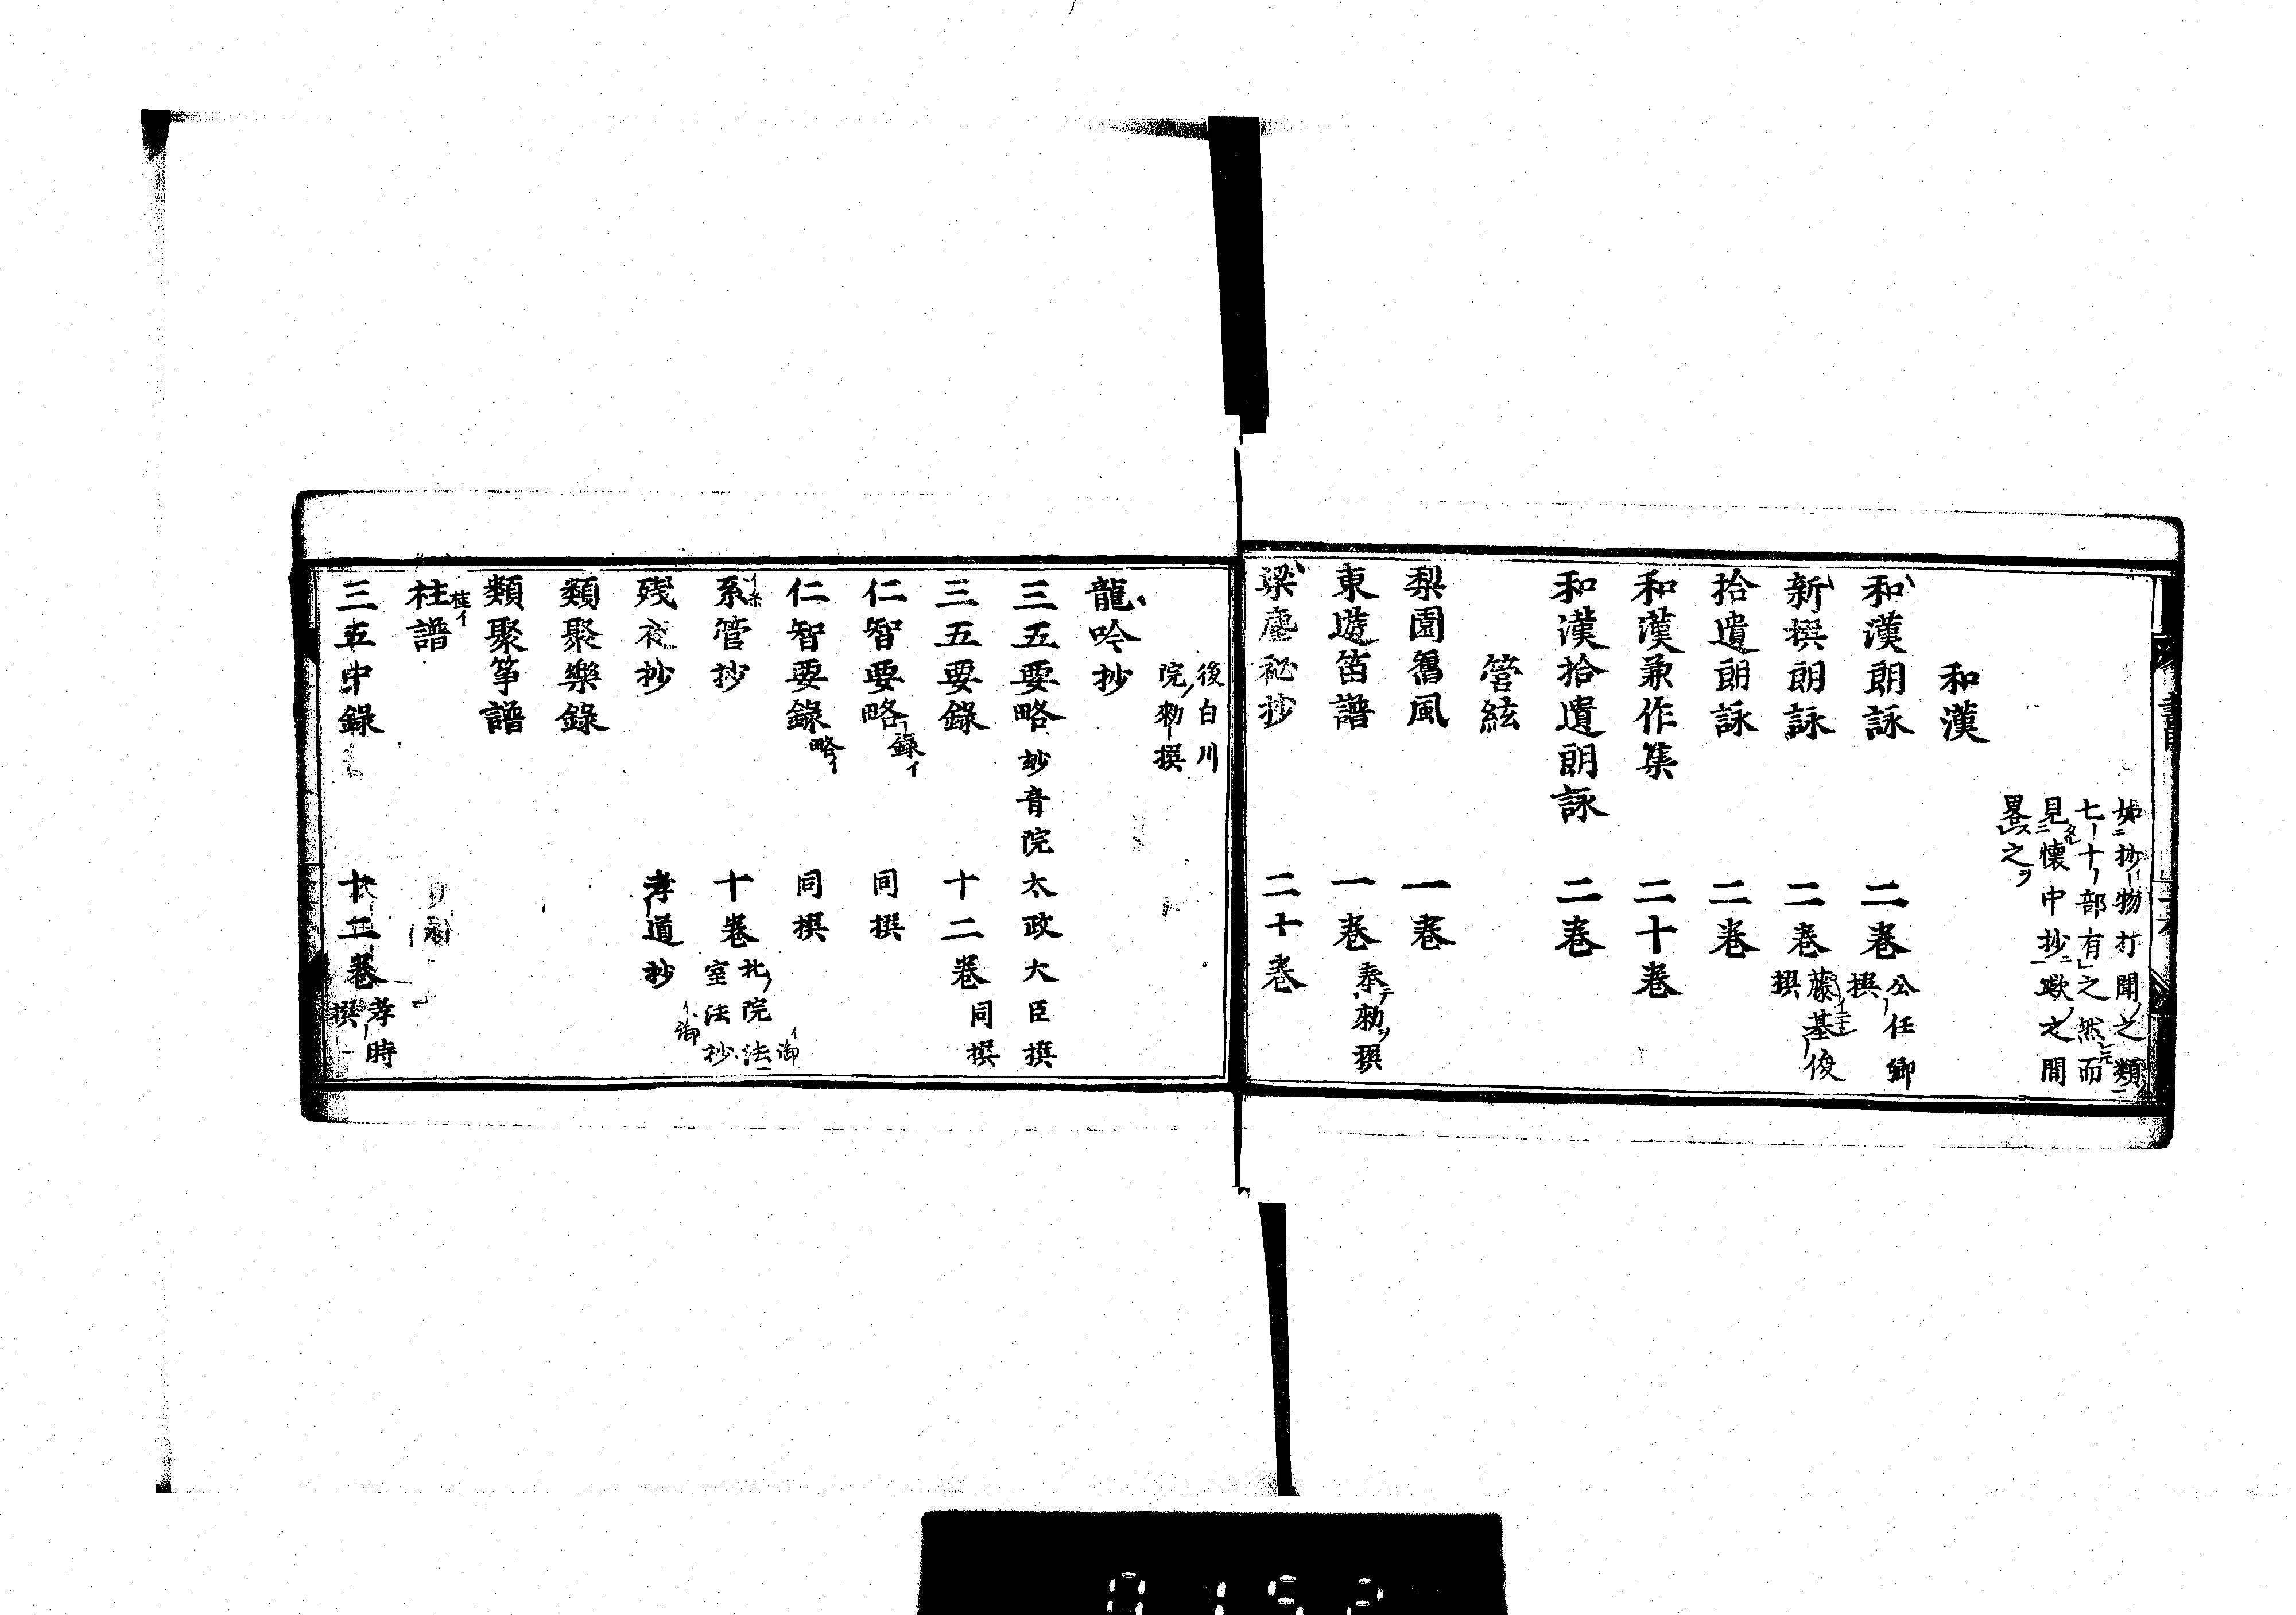 如抄物打聞之類
七十部有之然而
見懐中抄歟之間
畧之
和漢
和漢朗詠 二巻 公任卿
撰
新撰朗詠 二巻 藤基俊
撰
拾遺朗詠 二巻
和漢兼作集 二十巻
和漢拾遺朗詠 二巻
管絃
梨園舊風 一巻
東遊笛譜 一巻 奉テ勅ヲ撰
梁塵秘抄 二十巻
後白川
院ノ勅撰
龍吟抄
三五要略 妙音院太政大臣撰
三五要錄 十二巻 同撰
仁智要略 錄イ 同撰
仁智要錄 略イ 同撰
系管抄 十巻 北院法
室法抄
イ御
イ御
残夜抄 孝道抄
類聚樂錄
類聚筝譜
柱譜 桂イ
三五中錄 十二巻 孝時
撰
0152